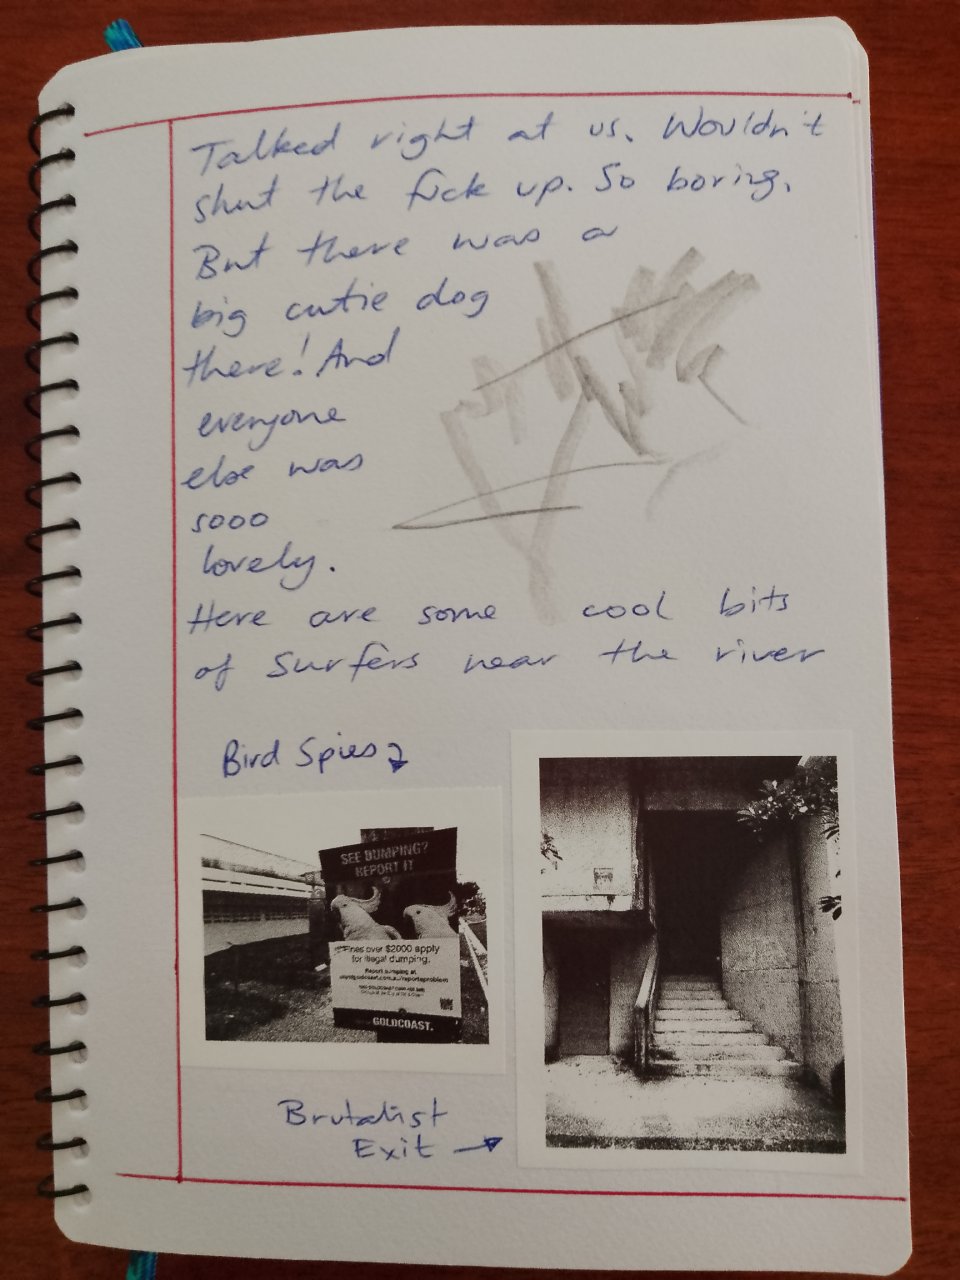 Talked right at us. Wouldn't
shut the fuck up. So boring.
But there was a
big cutie dog
there! And
everyone
else was
sooo
lovely.
Here are some cool bits
of Surfers near the river
Bird Spies
SEE DUMPING?
REPORT IT
Fines over $2000 apply
for illegal dumping.
Report dumping at
GOLDCOAST.
Brutalist
Exit